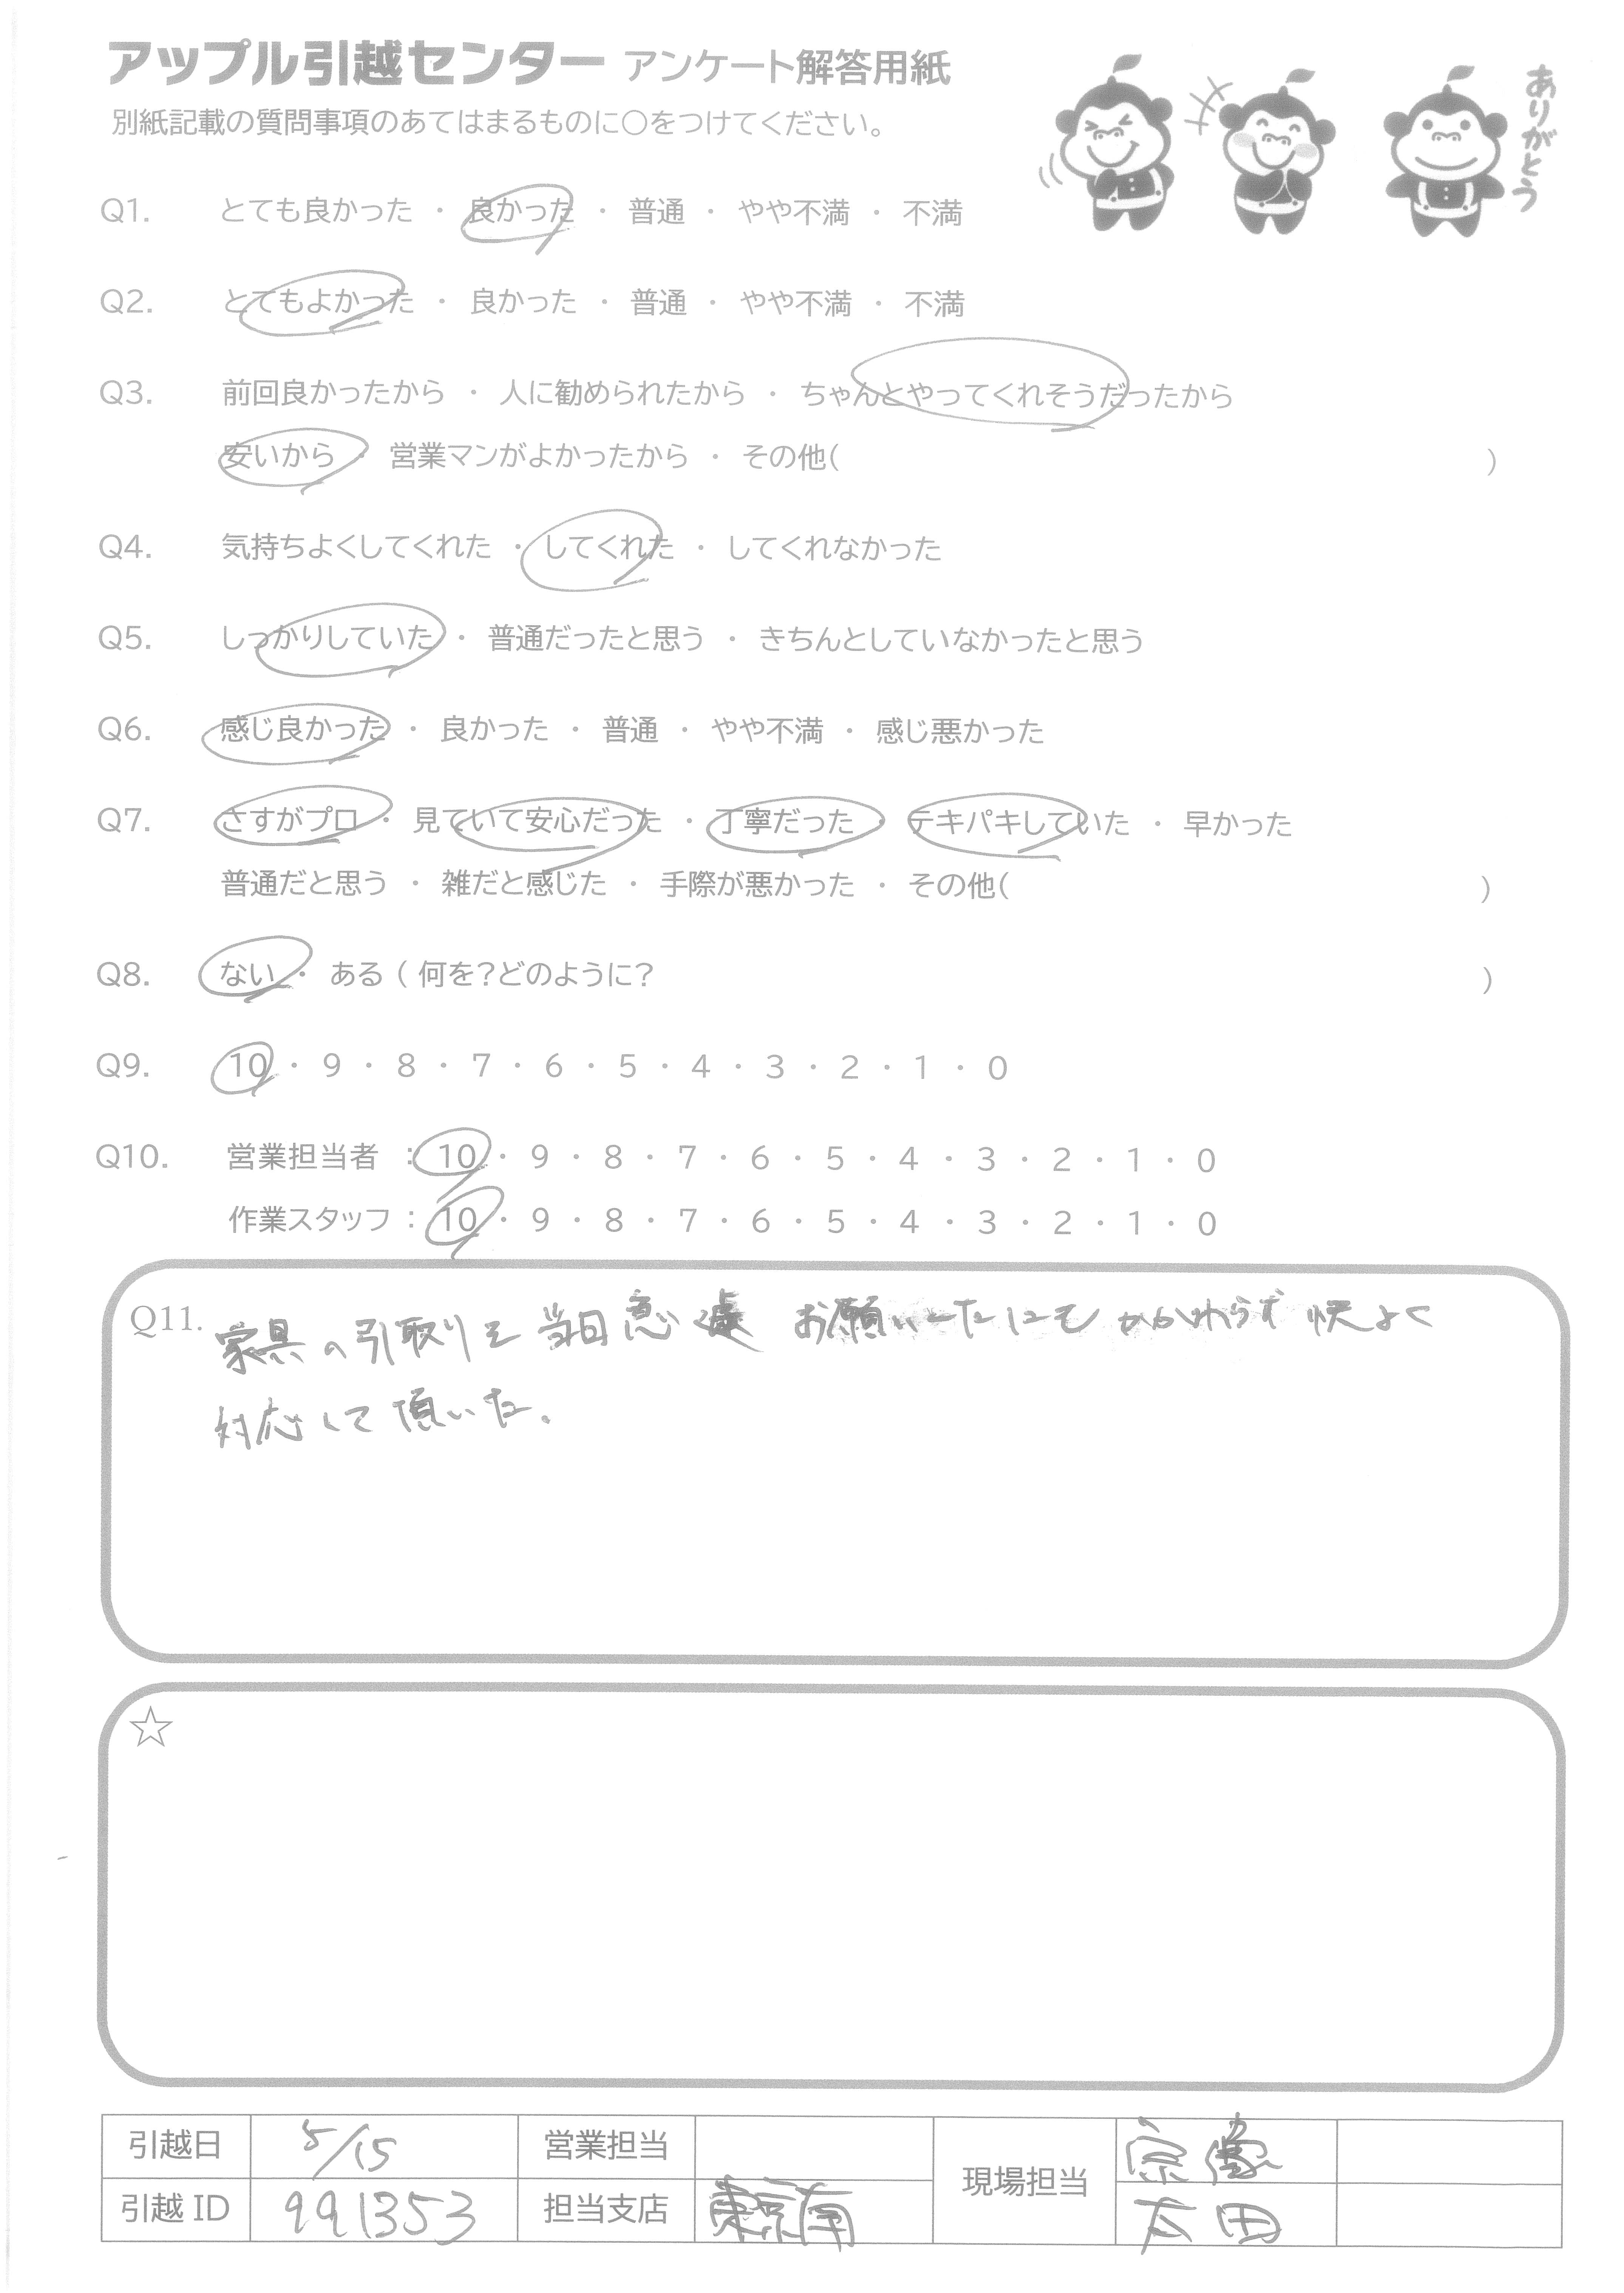 アップル引越センター アンケート解答用紙
別紙記載の質問事項のあてはまるものに○をつけてください。
ありがとう
Q1. とても良かった ・ 良かった ・ 普通 ・ やや不満 ・ 不満
Q2. とてもよかった ・ 良かった ・ 普通 ・ やや不満 ・ 不満
Q3. 前回良かったから ・ 人に勧められたから ・ ちゃんとやってくれそうだったから
安いから ・ 営業マンがよかったから ・ その他( )
Q4. 気持ちよくしてくれた ・ してくれた ・ してくれなかった
Q5. しっかりしていた ・ 普通だったと思う ・ きちんとしていなかったと思う
Q6. 感じ良かった ・ 良かった ・ 普通 ・ やや不満 ・ 感じ悪かった
Q7. さすがプロ ・ 見ていて安心だった ・ 丁寧だった ・ テキパキしていた ・ 早かった
普通だと思う ・ 雑だと感じた ・ 手際が悪かった ・ その他( )
Q8. ない ・ ある ( 何を?どのように? )
Q9. 10 ・ 9 ・ 8 ・ 7 ・ 6 ・ 5 ・ 4 ・ 3 ・ 2 ・ 1 ・ 0
Q10. 営業担当者 : 10 ・ 9 ・ 8 ・ 7 ・ 6 ・ 5 ・ 4 ・ 3 ・ 2 ・ 1 ・ 0
作業スタッフ : 10 ・ 9 ・ 8 ・ 7 ・ 6 ・ 5 ・ 4 ・ 3 ・ 2 ・ 1 ・ 0
Q11. 家具の引取りを当日急遽 お願いしたにもかかわらず快よく
対応して頂いた。
☆
引越日 5/15 営業担当 現場担当 宗像
引越 ID 991353 担当支店 東京南 太田